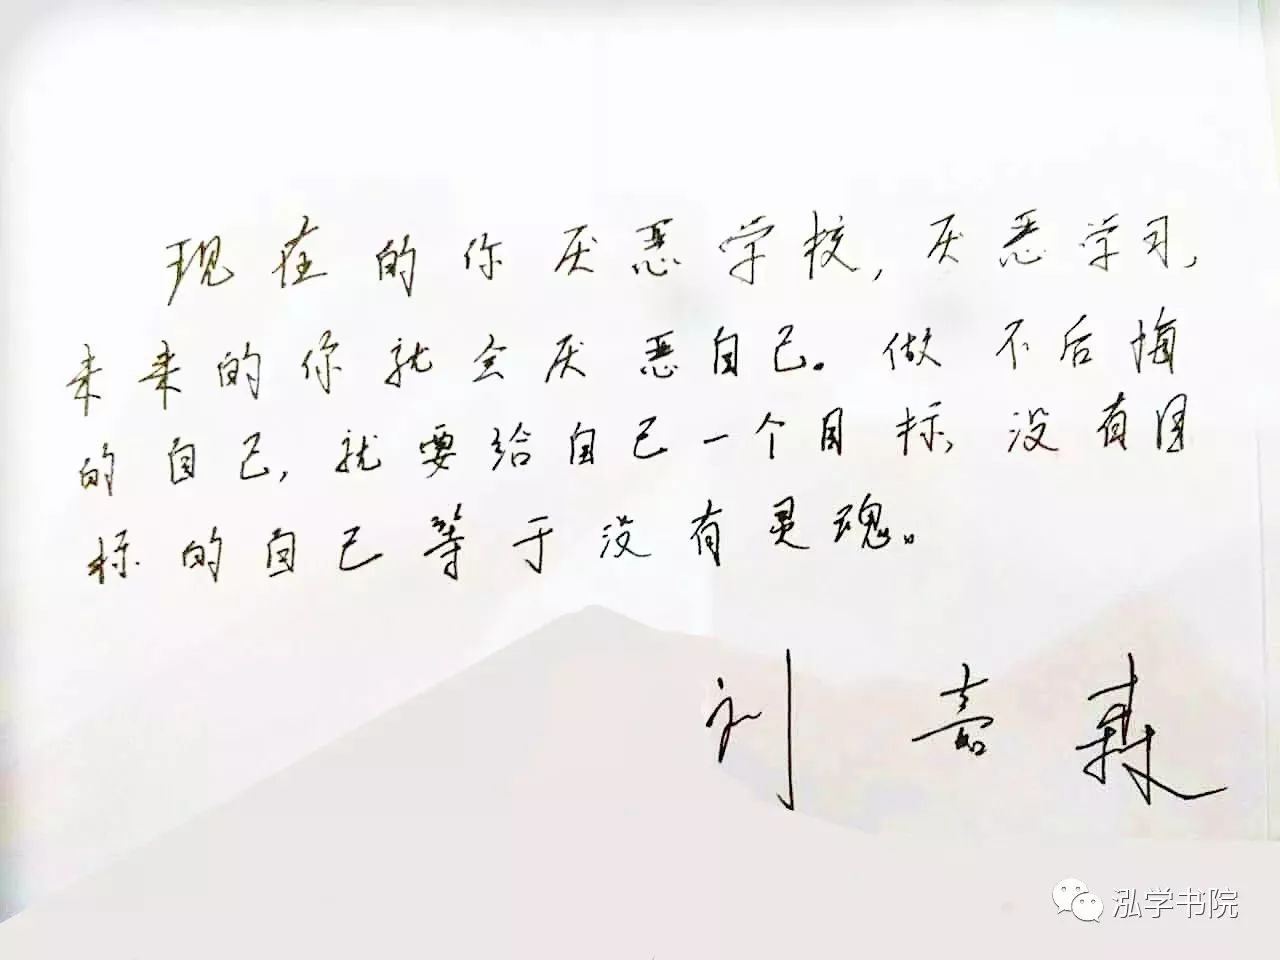 现在的你厌恶学校,厌恶学习,
未来的你就会厌恶自己。做不后悔
的自己,就要给自己一个目标,没有目
标的自己等于没有灵魂。
刘嘉森
泓学书院